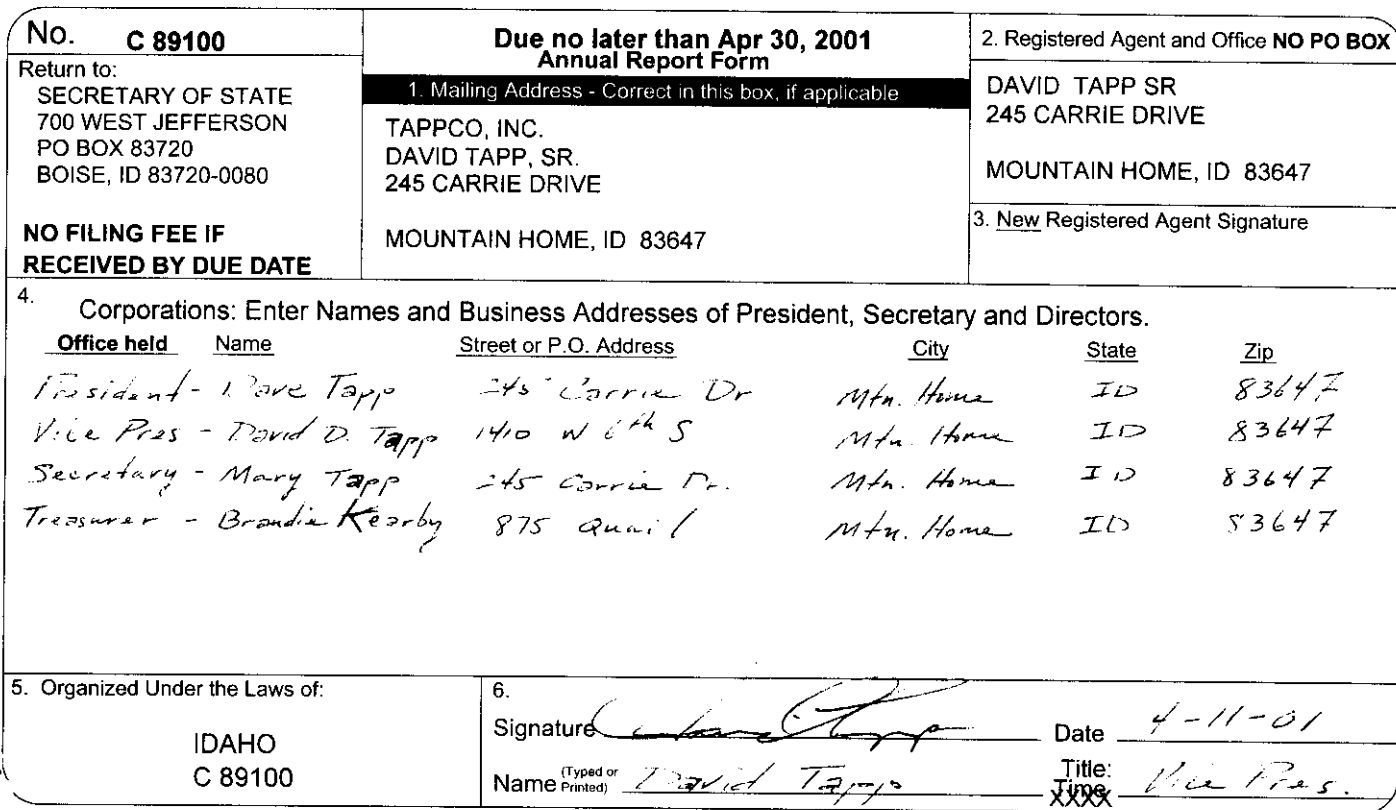 No. C 89100
Return to:
SECRETARY OF STATE
700 WEST JEFFERSON
PO BOX 83720
BOISE, ID 83720-0080
NO FILING FEE IF
RECEIVED BY DUE DATE
Due no later than Apr 30, 2001
Annual Report Form
1. Mailing Address - Correct in this box, if applicable
TAPPCO, INC.
DAVID TAPP, SR.
245 CARRIE DRIVE
MOUNTAIN HOME, ID 83647
2. Registered Agent and Office NO PO BOX
DAVID TAPP SR
245 CARRIE DRIVE
MOUNTAIN HOME, ID 83647
3. New Registered Agent Signature
4. Corporations: Enter Names and Business Addresses of President, Secretary and Directors.
Office held Name Street or P.O. Address City State Zip
President - Dave Tapp 245 Carrie Dr Mtn. Home ID 83647
Vice Pres - David D. Tapp 1410 W 6th S Mtn. Home ID 83647
Secretary - Mary Tapp 245 Carrie Dr. Mtn. Home ID 83647
Treasurer - Brandie Kearby 875 Quail Mtn. Home ID 83647
5. Organized Under the Laws of:
IDAHO
C 89100
6.
Signature Date 4-11-01
Name (Typed or Printed) David Tapp Title: Vice Pres.